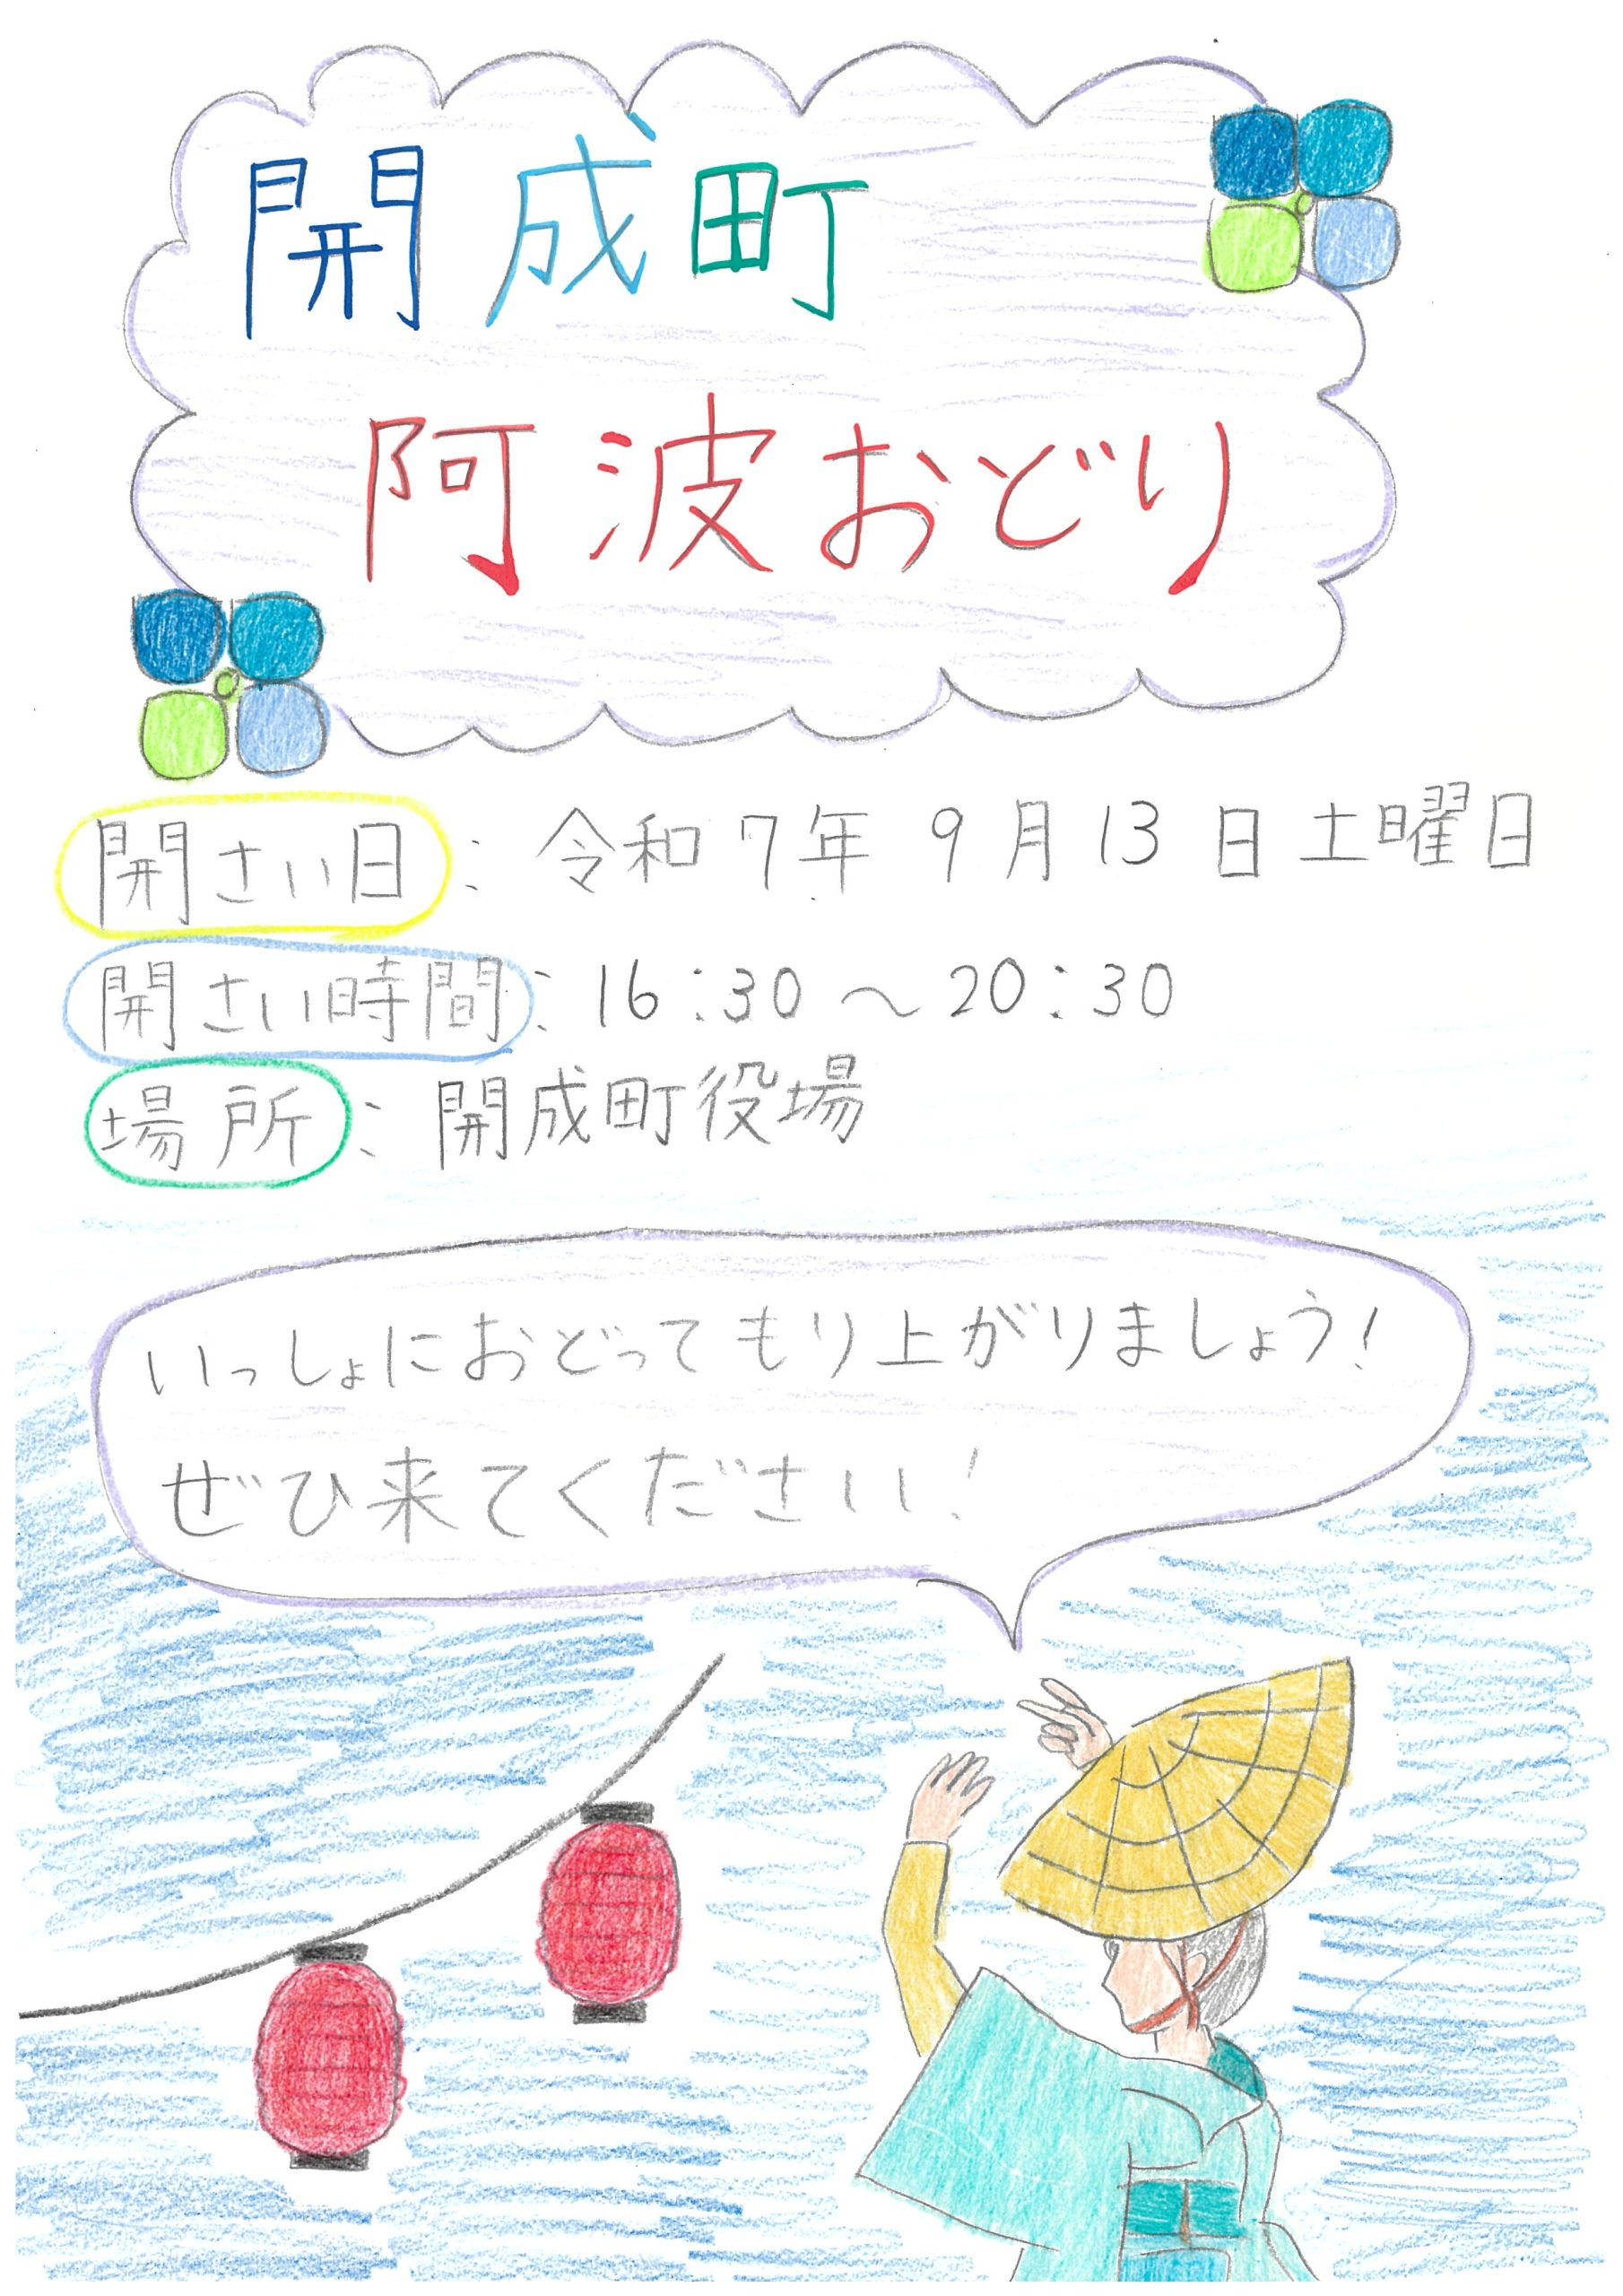 開成町
阿波おどり
開さい日：令和7年9月13日土曜日
開さい時間：16:30～20:30
場所：開成町役場
いっしょにおどってもり上がりましょう！
ぜひ来てください！